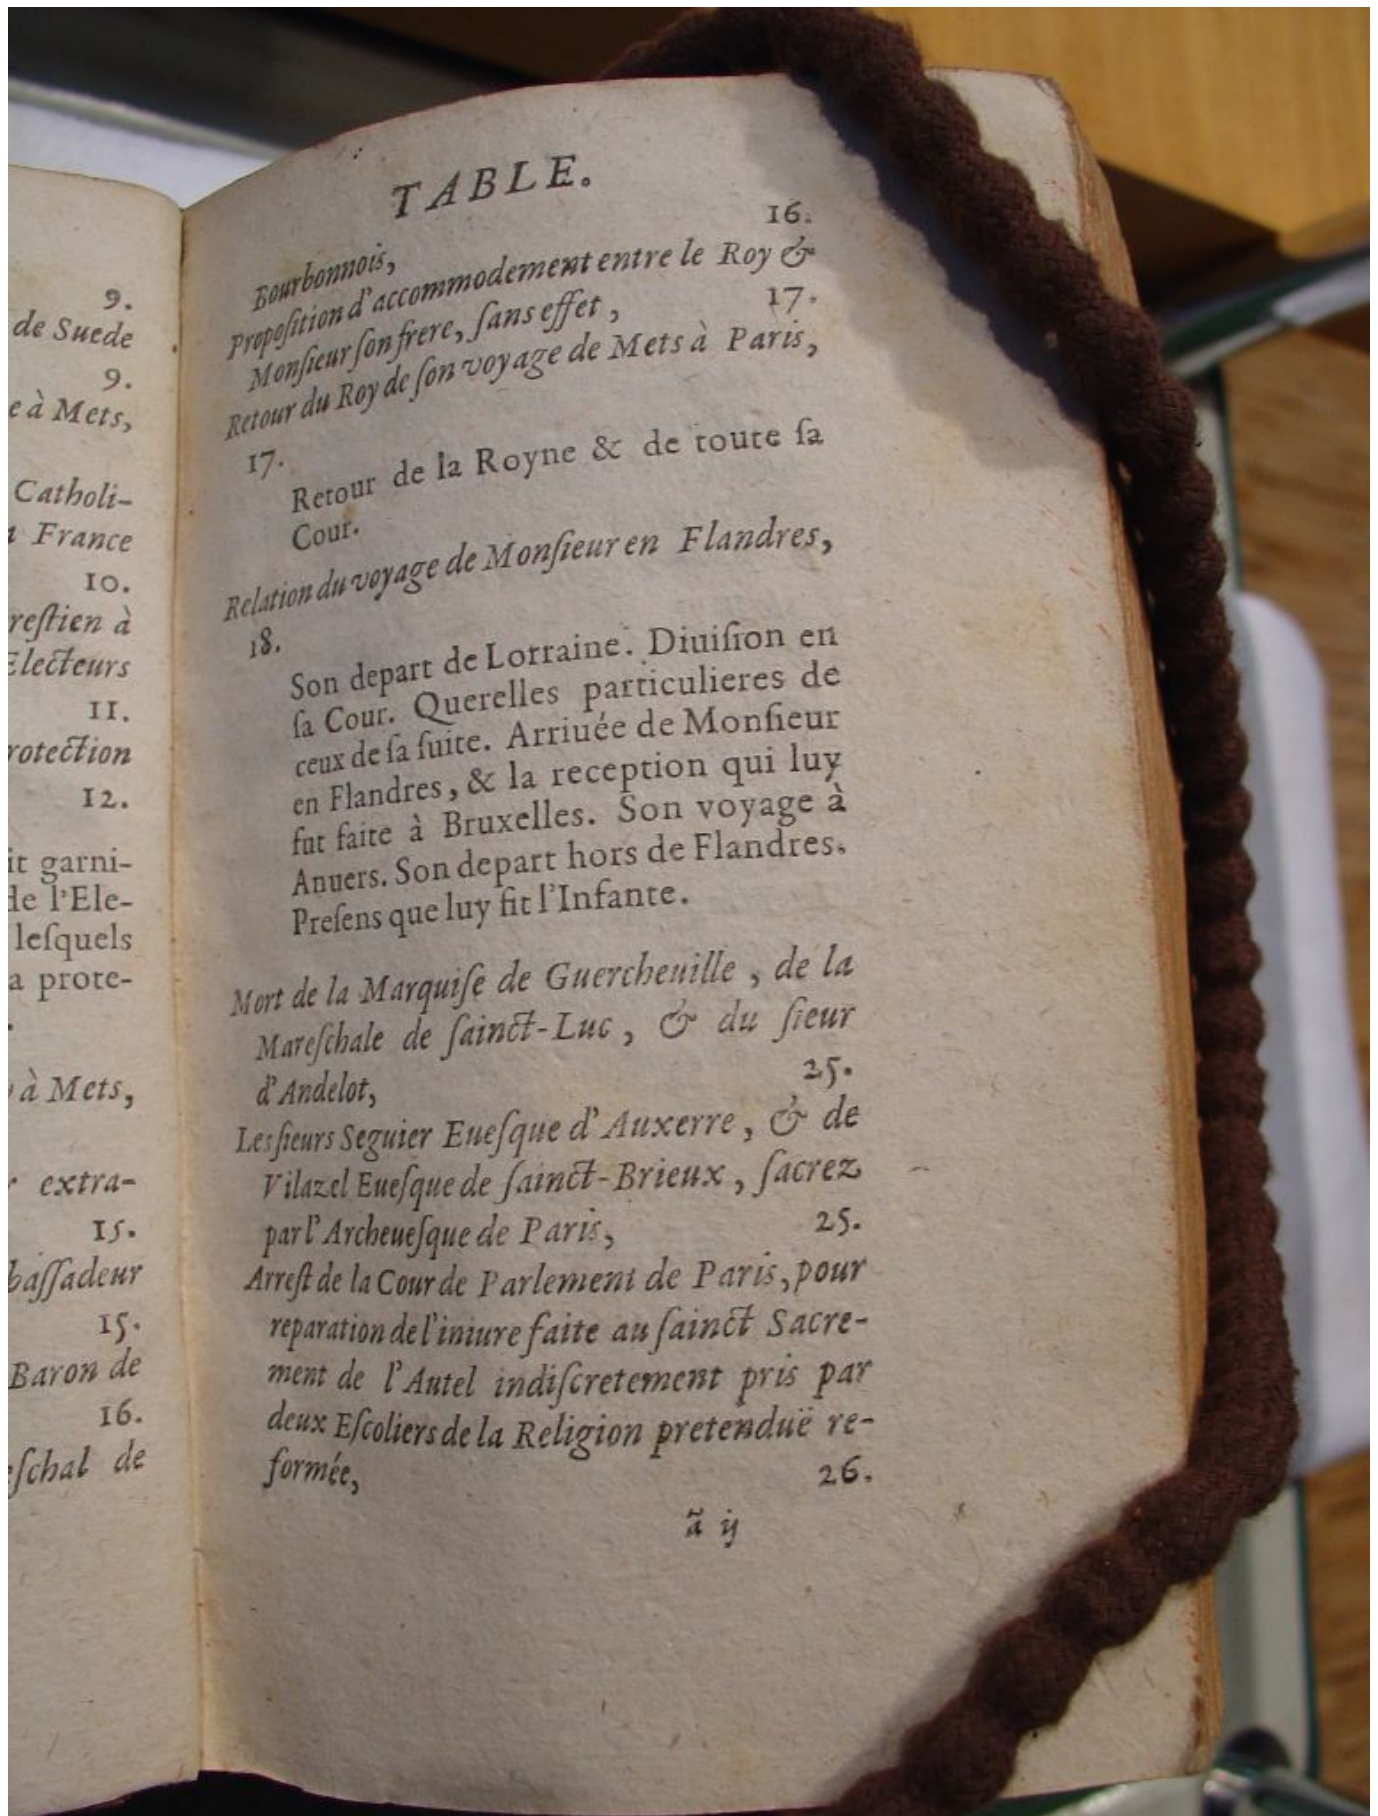 9.
de Suede
9.
e à Mets,
Catholi-
France
10.
reſtien à
Electeurs
11.
rotection
12.
it garni-
de l'Ele-
leſquels
a prote-
à Mets,
extra-
15.
baſſadeur
15.
Baron de
16.
eſchal de
TABLE.
Bourbonnois, 16.
Propoſition d'accommodement entre le Roy &
Monſieur ſon frere, ſans effet, 17.
Retour du Roy de ſon voyage de Mets à Paris,
17.
Retour de la Royne & de toute ſa
Cour.
Relation du voyage de Monſieur en Flandres,
18.
Son depart de Lorraine. Diuiſion en
ſa Cour. Querelles particulieres de
ceux de ſa ſuite. Arriuée de Monſieur
en Flandres, & la reception qui luy
fut faite à Bruxelles. Son voyage à
Anuers. Son depart hors de Flandres.
Preſens que luy fit l'Infante.
Mort de la Marquiſe de Guercheuille, de la
Mareſchale de ſainct-Luc, & du ſieur
d'Andelot, 25.
Les ſieurs Seguier Eueſque d'Auxerre, & de
Vilazel Eueſque de ſainct-Brieux, ſacrez
par l'Archeueſque de Paris, 25.
Arreſt de la Cour de Parlement de Paris, pour
reparation de l'iniure faite au ſainct Sacre-
ment de l'Autel indiſcretement pris par
deux Eſcoliers de la Religion pretenduë re-
formée, 26.
ã ij